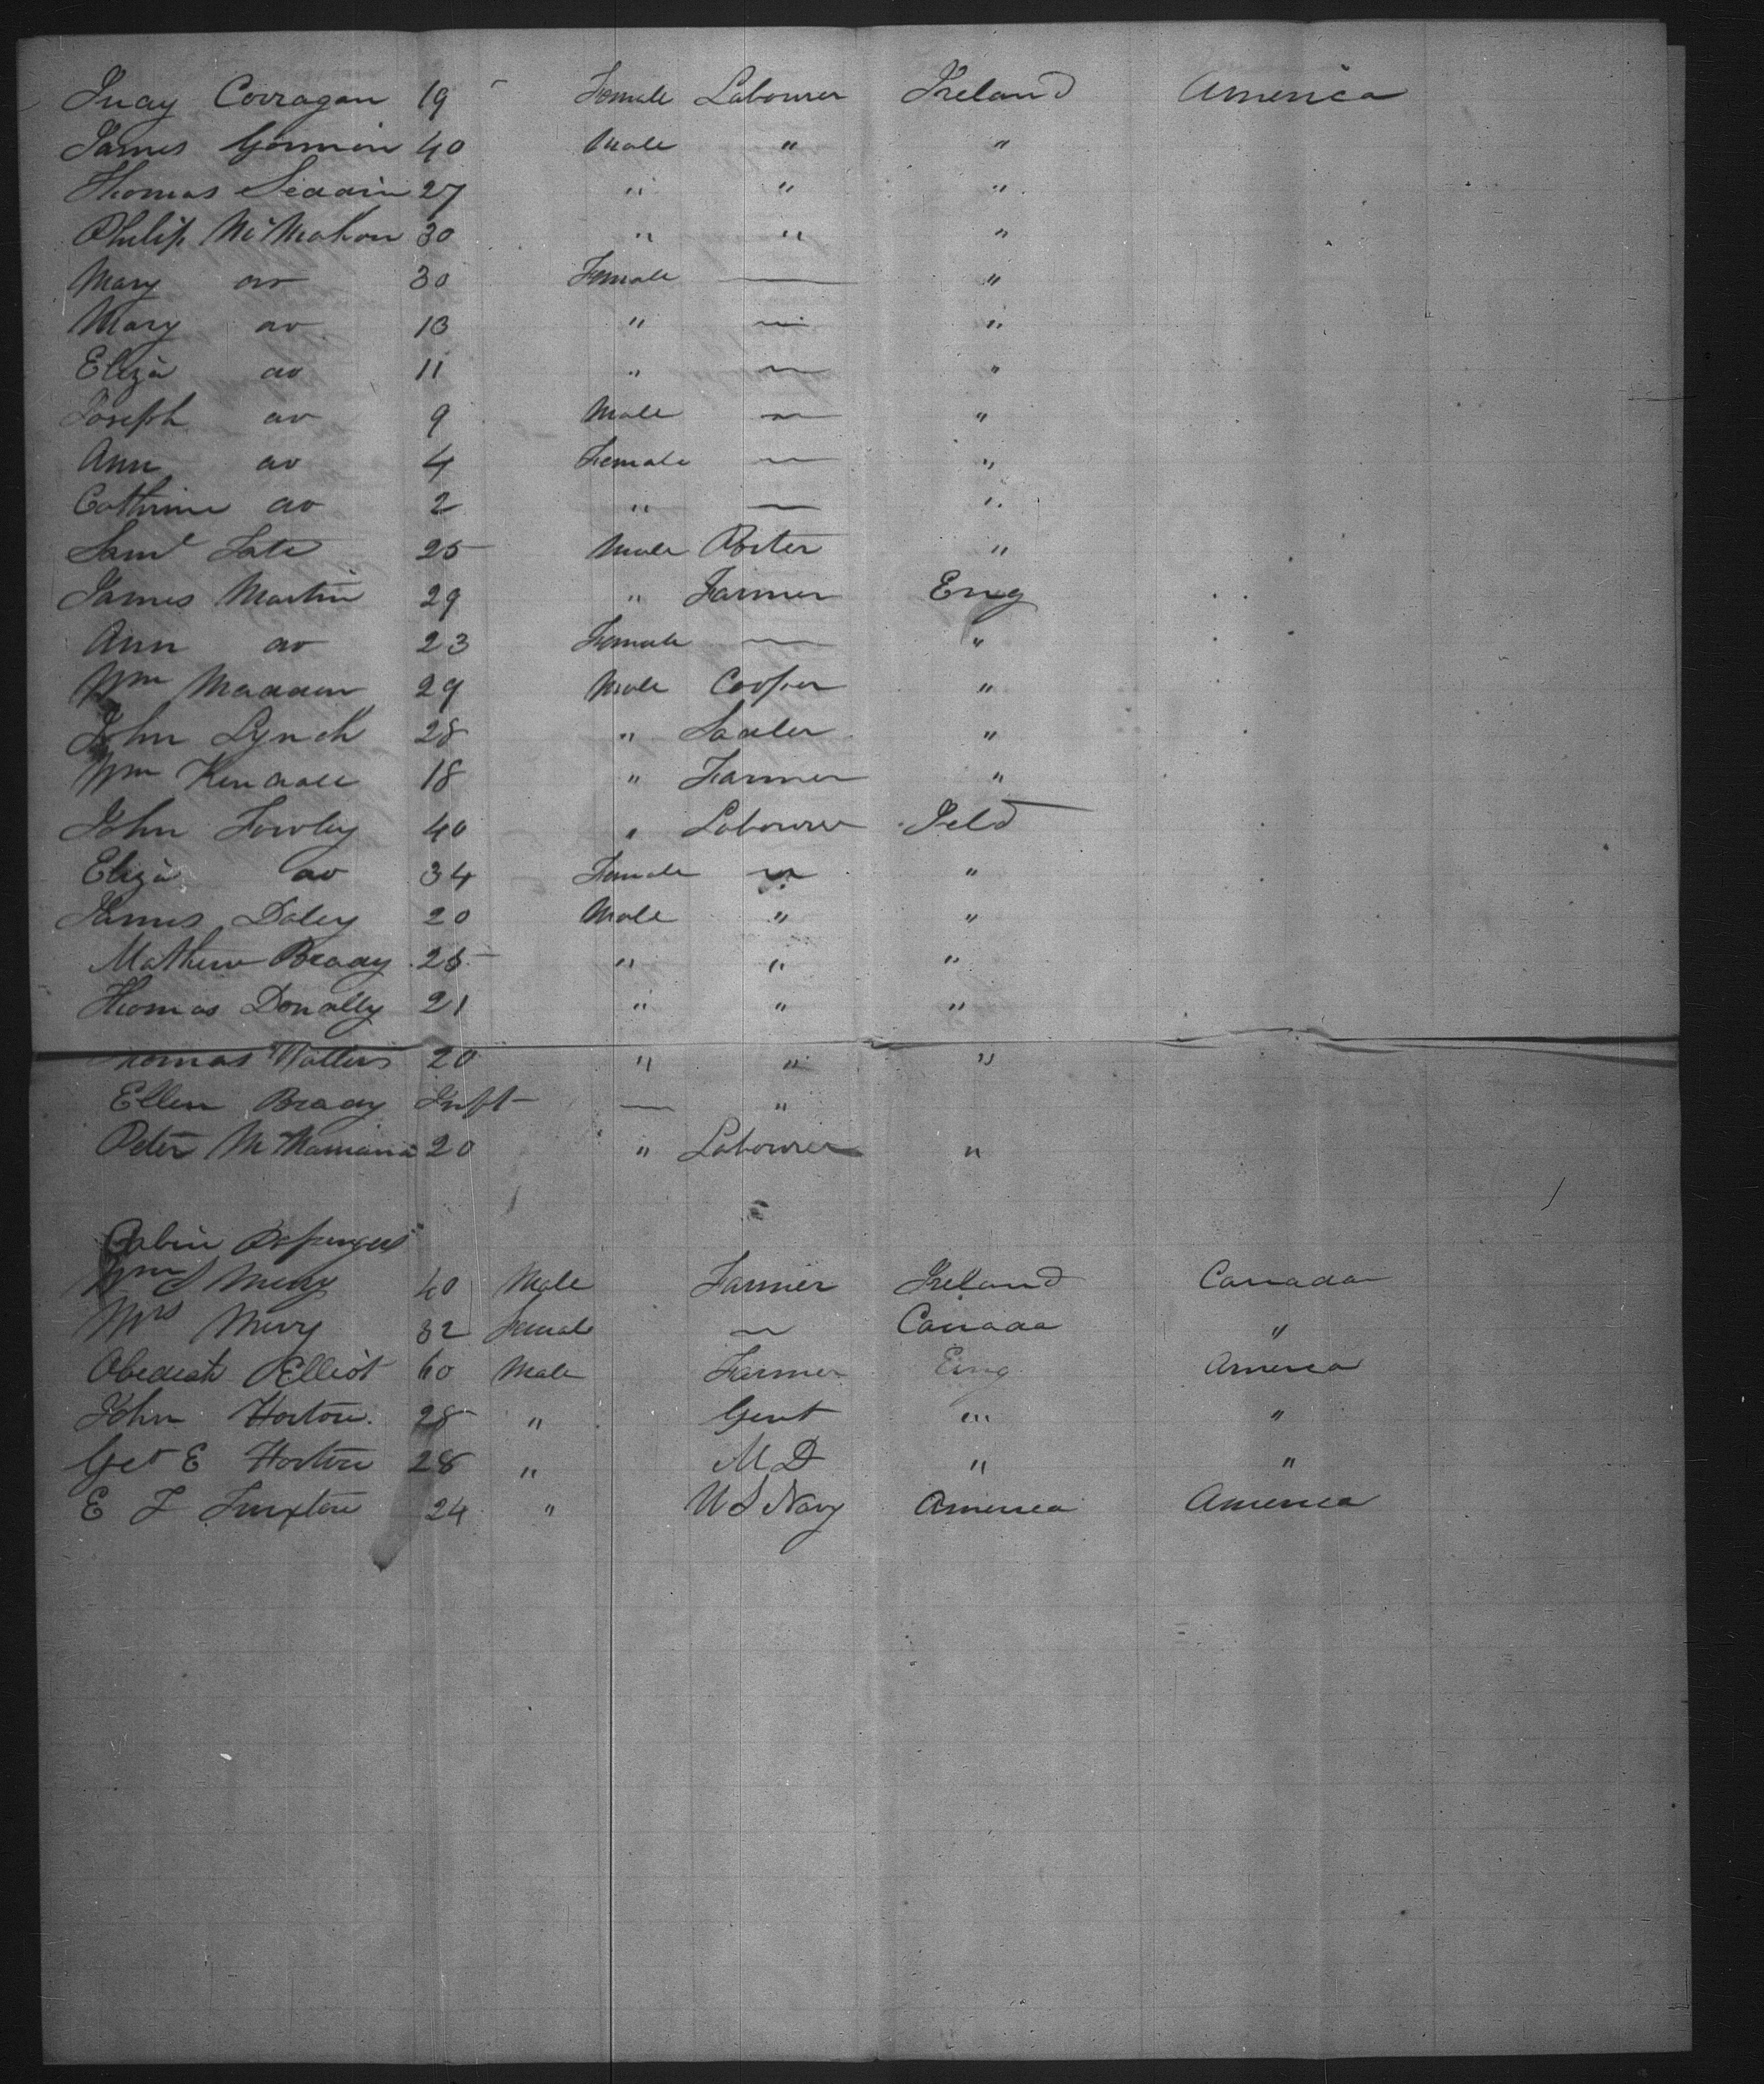 Judy Corragan 19 Female Labourer Ireland America
James Gormin 40 Male " "
Thomas 27 " " "
Philip McMahon 30 " " "
Mary do 30 Female — "
Mary do 13 " — "
Eliza do 11 " — "
Joseph do 9 Male — "
Ann do 4 Female — "
Catherine do 2 " — "
Saml Tate 25 Male Porter "
James Martin 29 " Farmer Eng
Ann do 23 Female — "
Wm Madden 29 Male Cooper "
John Lynch 28 " Sadler "
Wm Kendall 18 " Farmer "
John Fowley 40 " Labourer Ireld
Eliza do 34 Female — "
James Daley 20 Male " "
Mathew Brady 25 " " "
Thomas Donally 21 " " "
Thomas Watters 20 " " "
Ellen Brady Inft — "
Peter 20 " Labourer "
Cabin Passengers
Wm S Merry 40 Male Farmer Ireland Canada
Mrs Merry 32 Female — Canada "
Obediah Elliot 60 Male Farmer Eng America
John Horton 28 " Gent " "
Geo E Horton 28 " M D " "
E F 24 " U S Navy America America